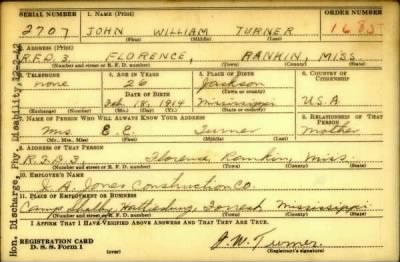 SERIAL NUMBER 1. NAME (Print) ORDER NUMBER
2707 JOHN WILLIAM TURNER 1685
(First) (Middle) (Last)
2. ADDRESS (Print)
R.F.D. 3. FLORENCE, RANKIN, MISS.
(Number and street or R. F. D. number) (Town) (County) (State)
3. TELEPHONE 4. AGE IN YEARS 5. PLACE OF BIRTH 6. COUNTRY OF CITIZENSHIP
none 26 Jackson
DATE OF BIRTH (Town or county)
Feb. 18, 1914 Mississippi U.S.A.
(Exchange) (Number) (Mo.) (Day) (Yr.) (State or country)
7. NAME OF PERSON WHO WILL ALWAYS KNOW YOUR ADDRESS 8. RELATIONSHIP OF THAT PERSON
Mrs E. Turner Mother
(Mr., Mrs., Miss) (First) (Middle) (Last)
9. ADDRESS OF THAT PERSON
R.F.D. 3. Florence, Rankin, Miss.
(Number and street or R. F. D. number) (Town) (County) (State)
10. EMPLOYER'S NAME
J. A. Jones Construction Co.
11. PLACE OF EMPLOYMENT OR BUSINESS
Camp Shelby, Hattiesburg, Forrest Mississippi
(Number and street or R. F. D. number) (Town) (County) (State)
I AFFIRM THAT I HAVE VERIFIED ABOVE ANSWERS AND THAT THEY ARE TRUE.
REGISTRATION CARD
D. S. S. Form 1
J. W. Turner
(Registrant's signature)
Hon. Discharge Phy. Disability